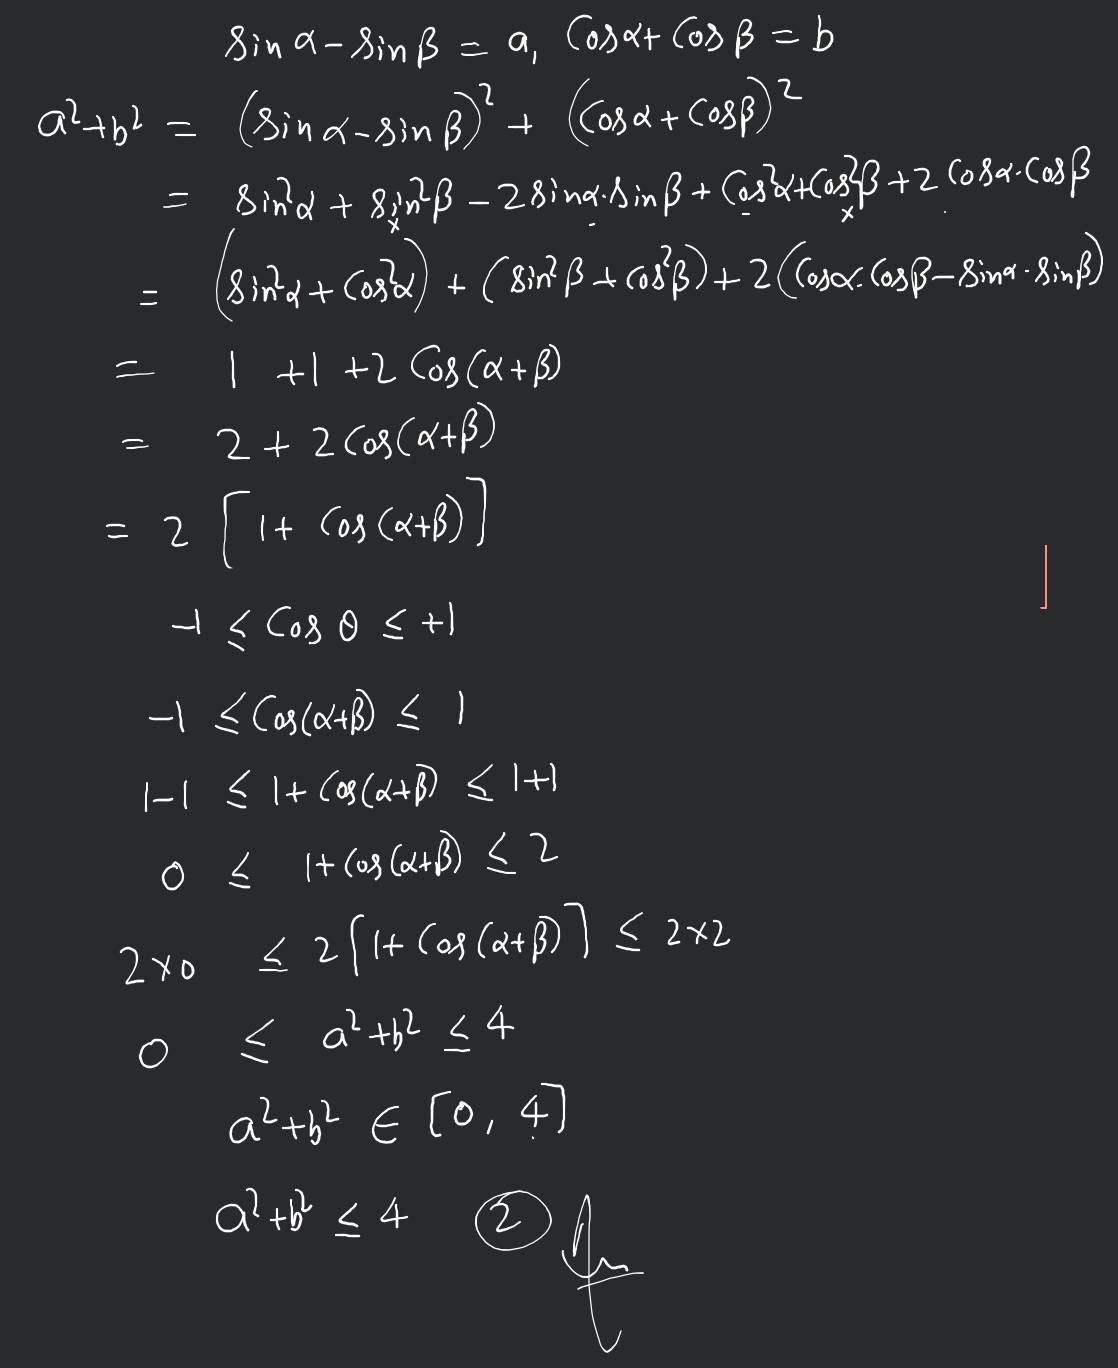 sin α - sin β = a, Cos α + Cos β = b
a² + b² = (sin α - sin β)² + (Cos α + Cos β)²
= sin²α + sin²β - 2 sin α · sin β + Cos²α + Cos²β + 2 Cos α · Cos β
= (sin²α + Cos²α) + (sin²β + Cos²β) + 2(Cos α · Cos β - sin α · sin β)
= 1 + 1 + 2 Cos(α + β)
= 2 + 2 Cos(α + β)
= 2 [1 + Cos(α + β)]
-1 ≤ Cos θ ≤ +1
-1 ≤ Cos(α + β) ≤ 1
1-1 ≤ 1 + Cos(α + β) ≤ 1+1
0 ≤ 1 + Cos(α + β) ≤ 2
2×0 ≤ 2[1 + Cos(α + β)] ≤ 2×2
0 ≤ a² + b² ≤ 4
a² + b² ∈ [0, 4]
a² + b² ≤ 4 ②